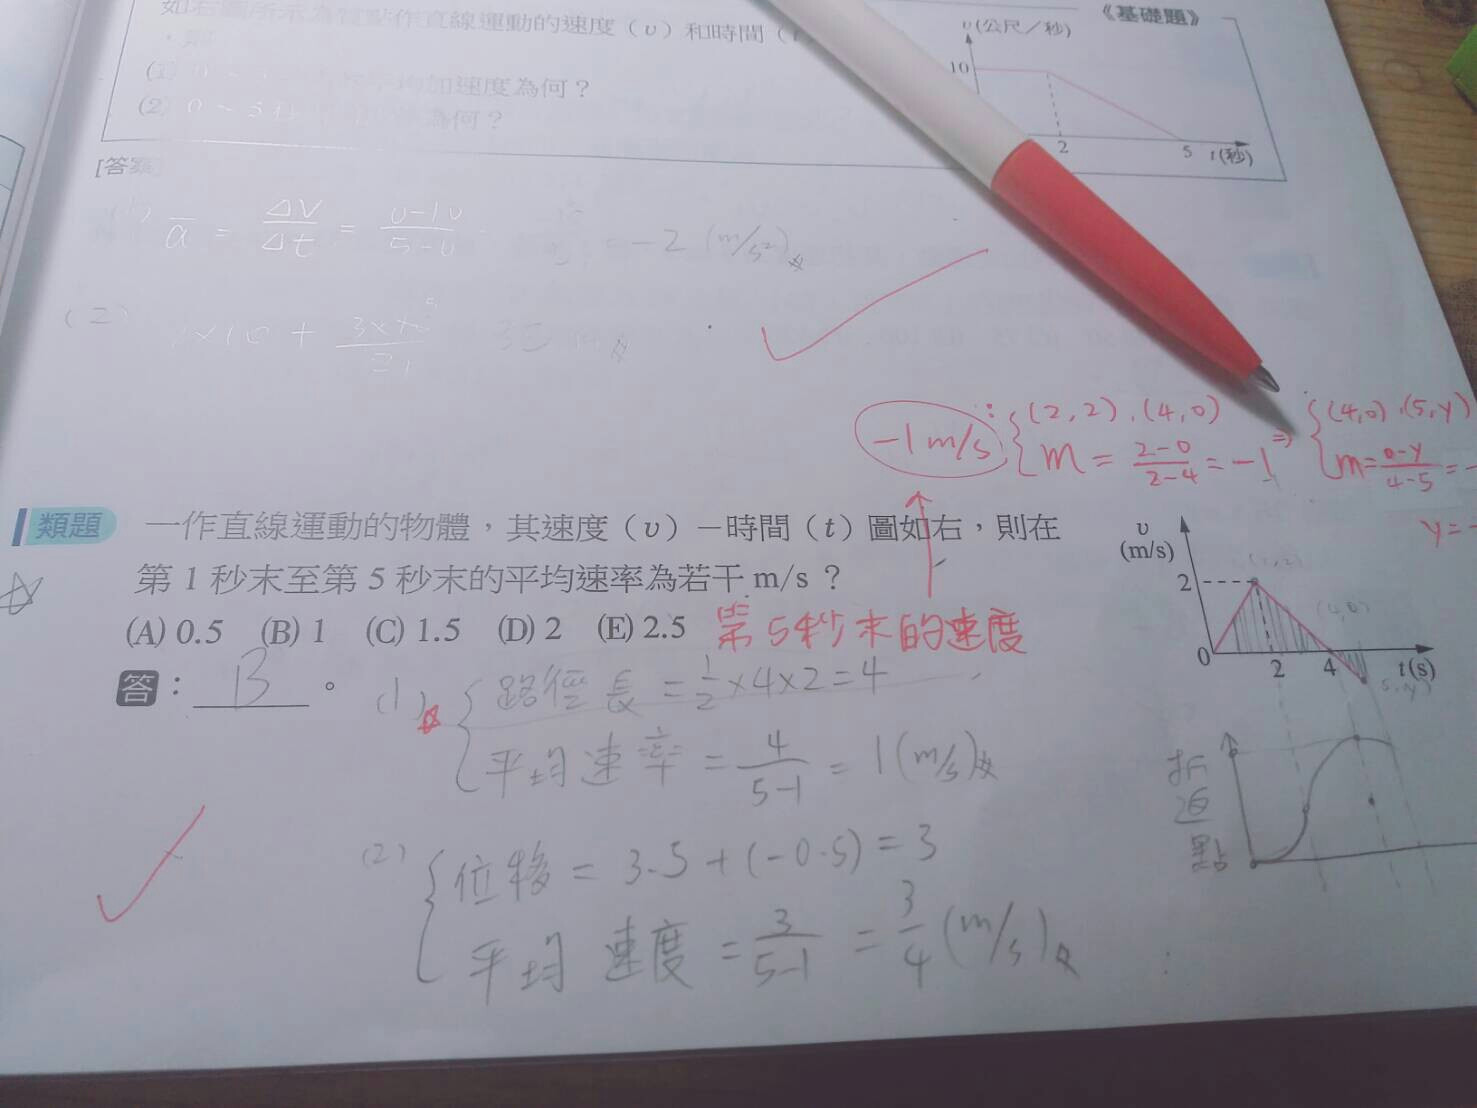 如右圖所示為物點作直線運動的速度（v）和時間（t
《基礎題》
v(公尺／秒)
10
2
5
t(秒)
(1)
平均加速度為何？
(2) 0～5秒
為何？
[答案]
(1) a̅ = ΔV/Δt = 0-10/5-0
= -2 (m/s²)
(2)
×10 +
35 m
-1 m/s
: { (2,2)、(4,0)
m = 2-0/2-4 = -1
⇒ { (4,0)、(5,y)
m = 0-y/4-5 = -
y = -
類題 一作直線運動的物體，其速度（v）－時間（t）圖如右，則在
第 1 秒末至第 5 秒末的平均速率為若干 m/s？
(A) 0.5 (B) 1 (C) 1.5 (D) 2 (E) 2.5
第5秒末的速度
答：B。
v
(m/s)
2
0
2
4
t(s)
(4,0)
5,y)
(1) { 路徑長 = 1/2×4×2 = 4
平均速率 = 4/5-1 = 1 (m/s)
(2) { 位移 = 3.5+(-0.5) = 3
平均速度 = 3/5-1 = 3/4 (m/s)
折返點